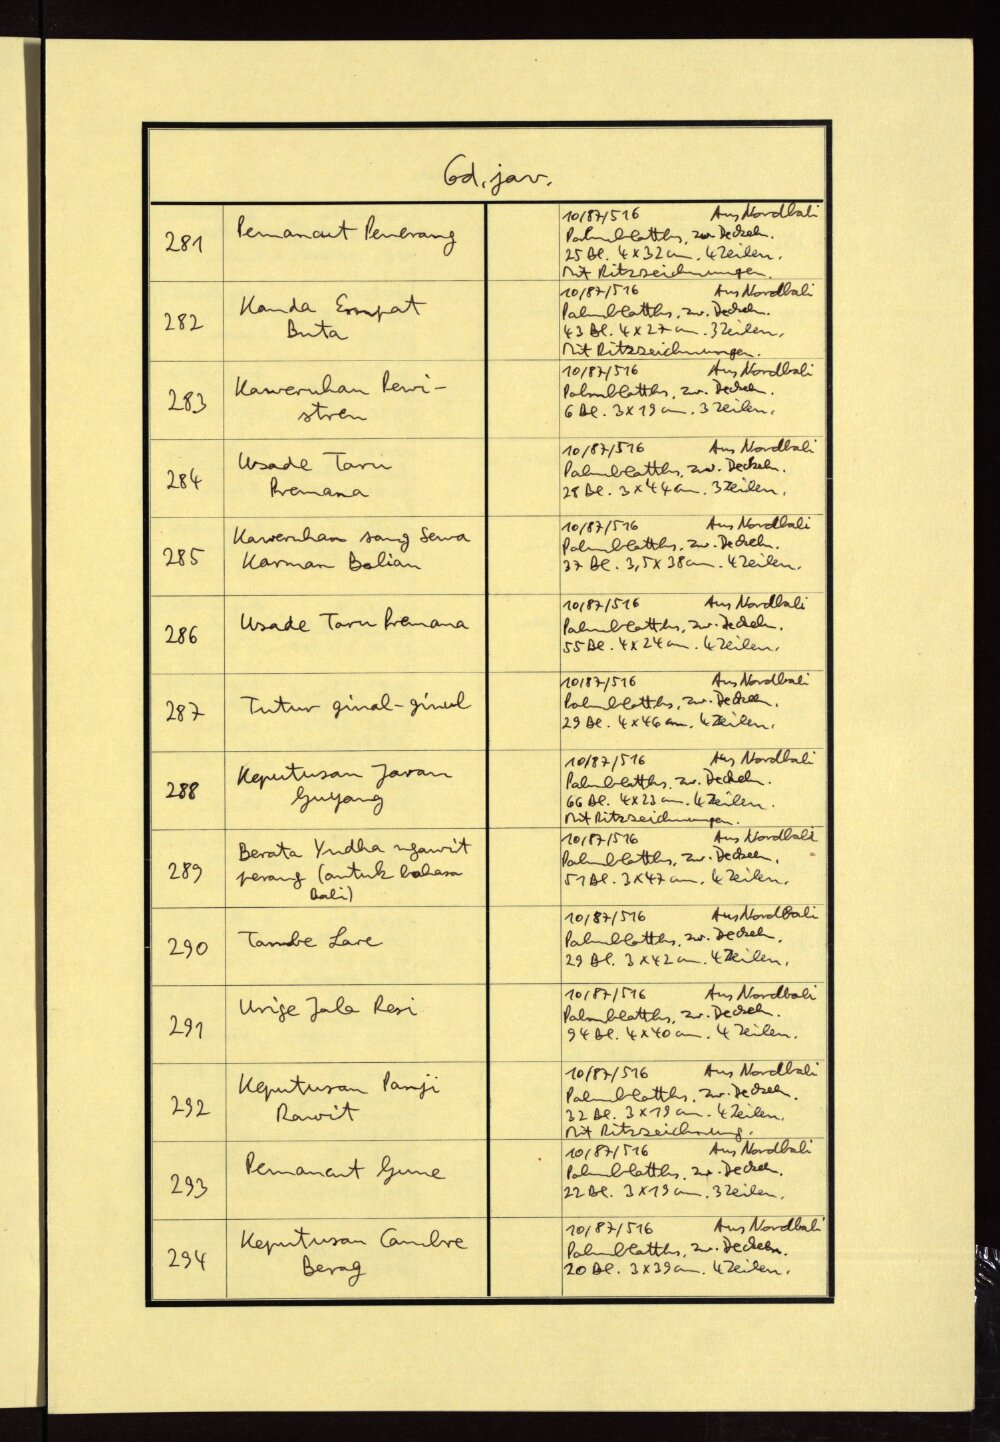 Cod. jav.
281 Pemancut Penerang
10/87/516 Aus Nordbali
Palmblatths. zw. Deckeln.
25 Bl. 4 x 32 cm. 4 Zeilen.
Mit Ritzzeichnungen.
282 Kanda Empat
Buta
10/87/516 Aus Nordbali
Palmblatths. zw. Deckeln.
43 Bl. 4 x 27 cm. 3 Zeilen.
Mit Ritzzeichnungen.
283 Kaweruhan Pewi-
stren
10/87/516 Aus Nordbali
Palmblatths. zw. Deckeln.
6 Bl. 3 x 19 cm. 3 Zeilen.
284 Usade Taru
Premana
10/87/516 Aus Nordbali
Palmblatths. zw. Deckeln.
28 Bl. 3 x 44 cm. 3 Zeilen.
285 Kaweruhan sang Sewa
Karman Balian
10/87/516 Aus Nordbali
Palmblatths. zw. Deckeln.
37 Bl. 3,5 x 38 cm. 4 Zeilen.
286 Usade Taru Premana
10/87/516 Aus Nordbali
Palmblatths. zw. Deckeln.
55 Bl. 4 x 24 cm. 4 Zeilen.
287 Tutur ginal-ginul
10/87/516 Aus Nordbali
Palmblatths. zw. Deckeln.
29 Bl. 4 x 46 cm. 4 Zeilen.
288 Keputusan Javan
Guyang
10/87/516 Aus Nordbali
Palmblatths. zw. Deckeln.
66 Bl. 4 x 23 cm. 4 Zeilen.
Mit Ritzzeichnungen.
289 Berata Yudha ngawit
perang (antuk bahasa
Bali)
10/87/516 Aus Nordbali
Palmblatths. zw. Deckeln.
51 Bl. 3 x 47 cm. 4 Zeilen.
290 Tambe Lare
10/87/516 Aus Nordbali
Palmblatths. zw. Deckeln.
29 Bl. 3 x 42 cm. 4 Zeilen.
291 Urige Jala Resi
10/87/516 Aus Nordbali
Palmblatths. zw. Deckeln.
94 Bl. 4 x 40 cm. 4 Zeilen.
292 Keputusan Panji
Rawit
10/87/516 Aus Nordbali
Palmblatths. zw. Deckeln.
32 Bl. 3 x 19 cm. 4 Zeilen.
Mit Ritzzeichnung.
293 Pemancut Gune
10/87/516 Aus Nordbali
Palmblatths. zw. Deckeln.
22 Bl. 3 x 19 cm. 3 Zeilen.
294 Keputusan Cambre
Berag
10/87/516 Aus Nordbali
Palmblatths. zw. Deckeln.
20 Bl. 3 x 39 cm. 4 Zeilen.